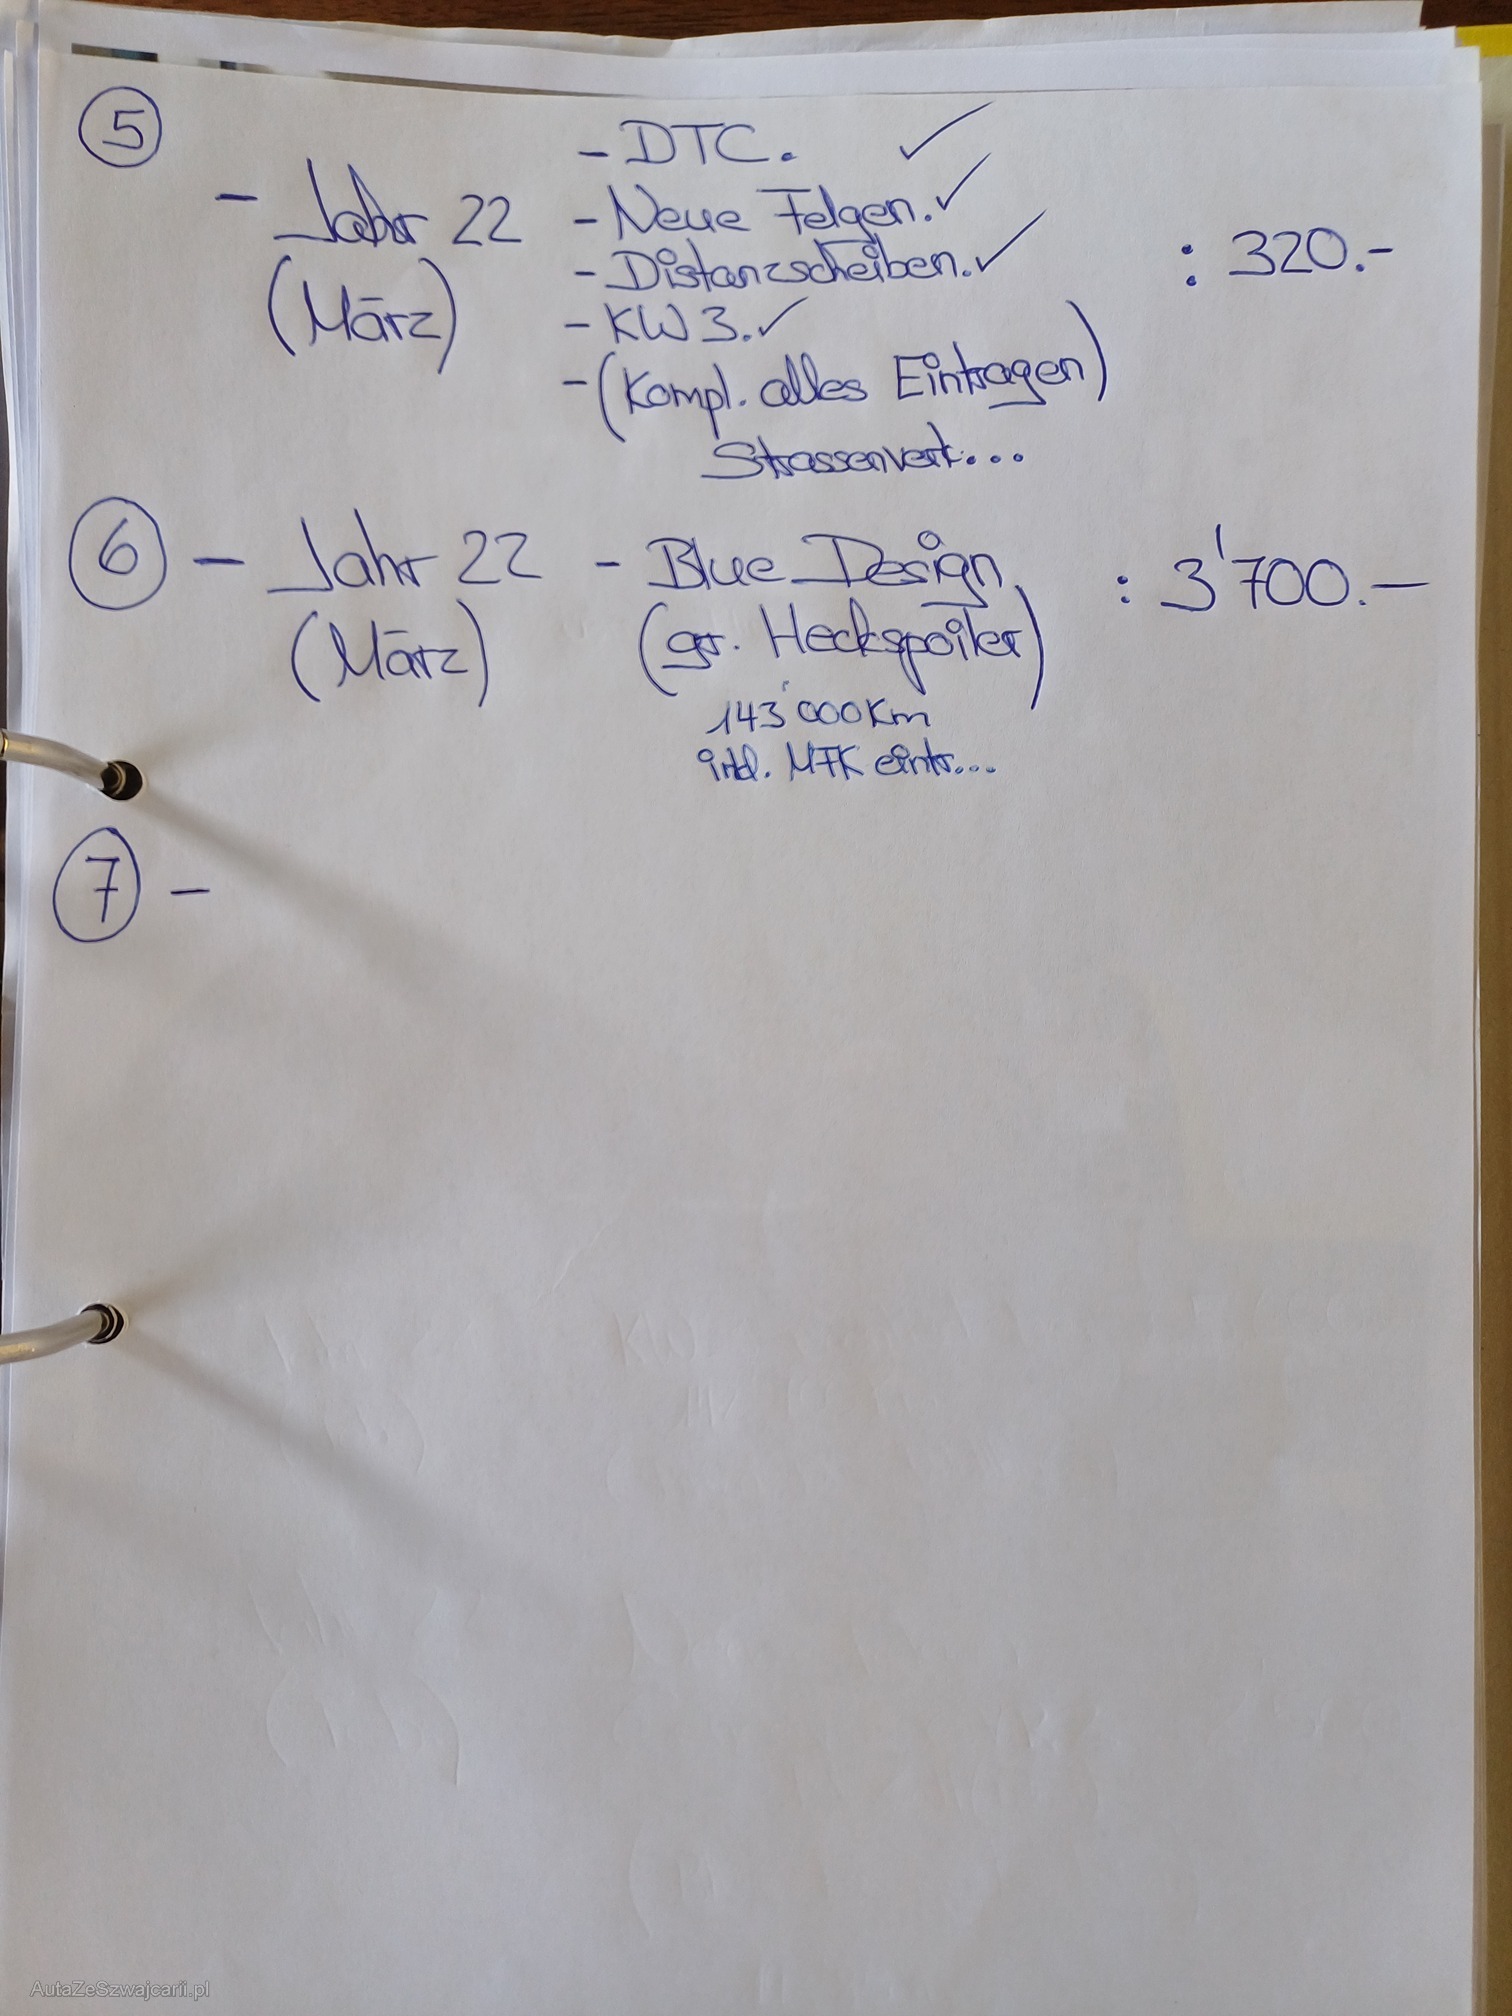 5
- DTC. ✓
- Jahr 22 - Neue Felgen. ✓
- Distanzscheiben. ✓ : 320.-
(März) - KW 3. ✓
- (Kompl. alles Eintragen)
Strassenverk...
6 - Jahr 22 - Blue Design : 3'700.-
(März) (gr. Heckspoiler)
143'000 Km
inkl. MFK eintr...
7 -
AutaZeSzwajcarii.pl